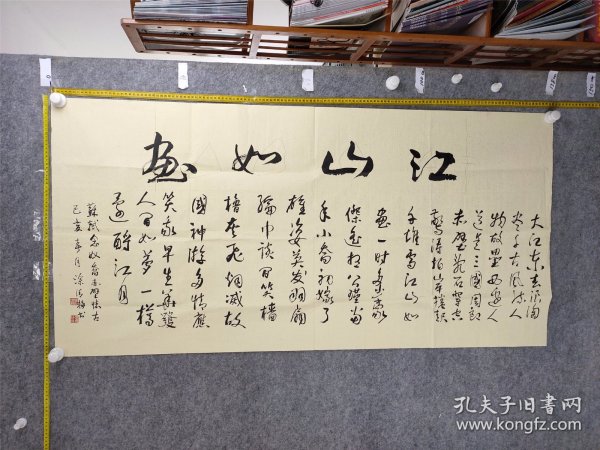 江山如画
大江东去浪淘
尽千古风流人
物故垒西边人
道是三國周郎
赤壁乱石穿空
驚涛拍岸捲起
千堆雪江山如
画一时多少豪
傑遥想公瑾当
年小喬初嫁了
雄姿英发羽扇
纶巾谈间笑樯
橹灰飞烟滅故
國神游多情應
笑我早生華髮
人间如梦一樽
還酹江月
蘇軾念奴嬌赤壁怀古
己亥
孔夫子旧书网
www.kongfz.com